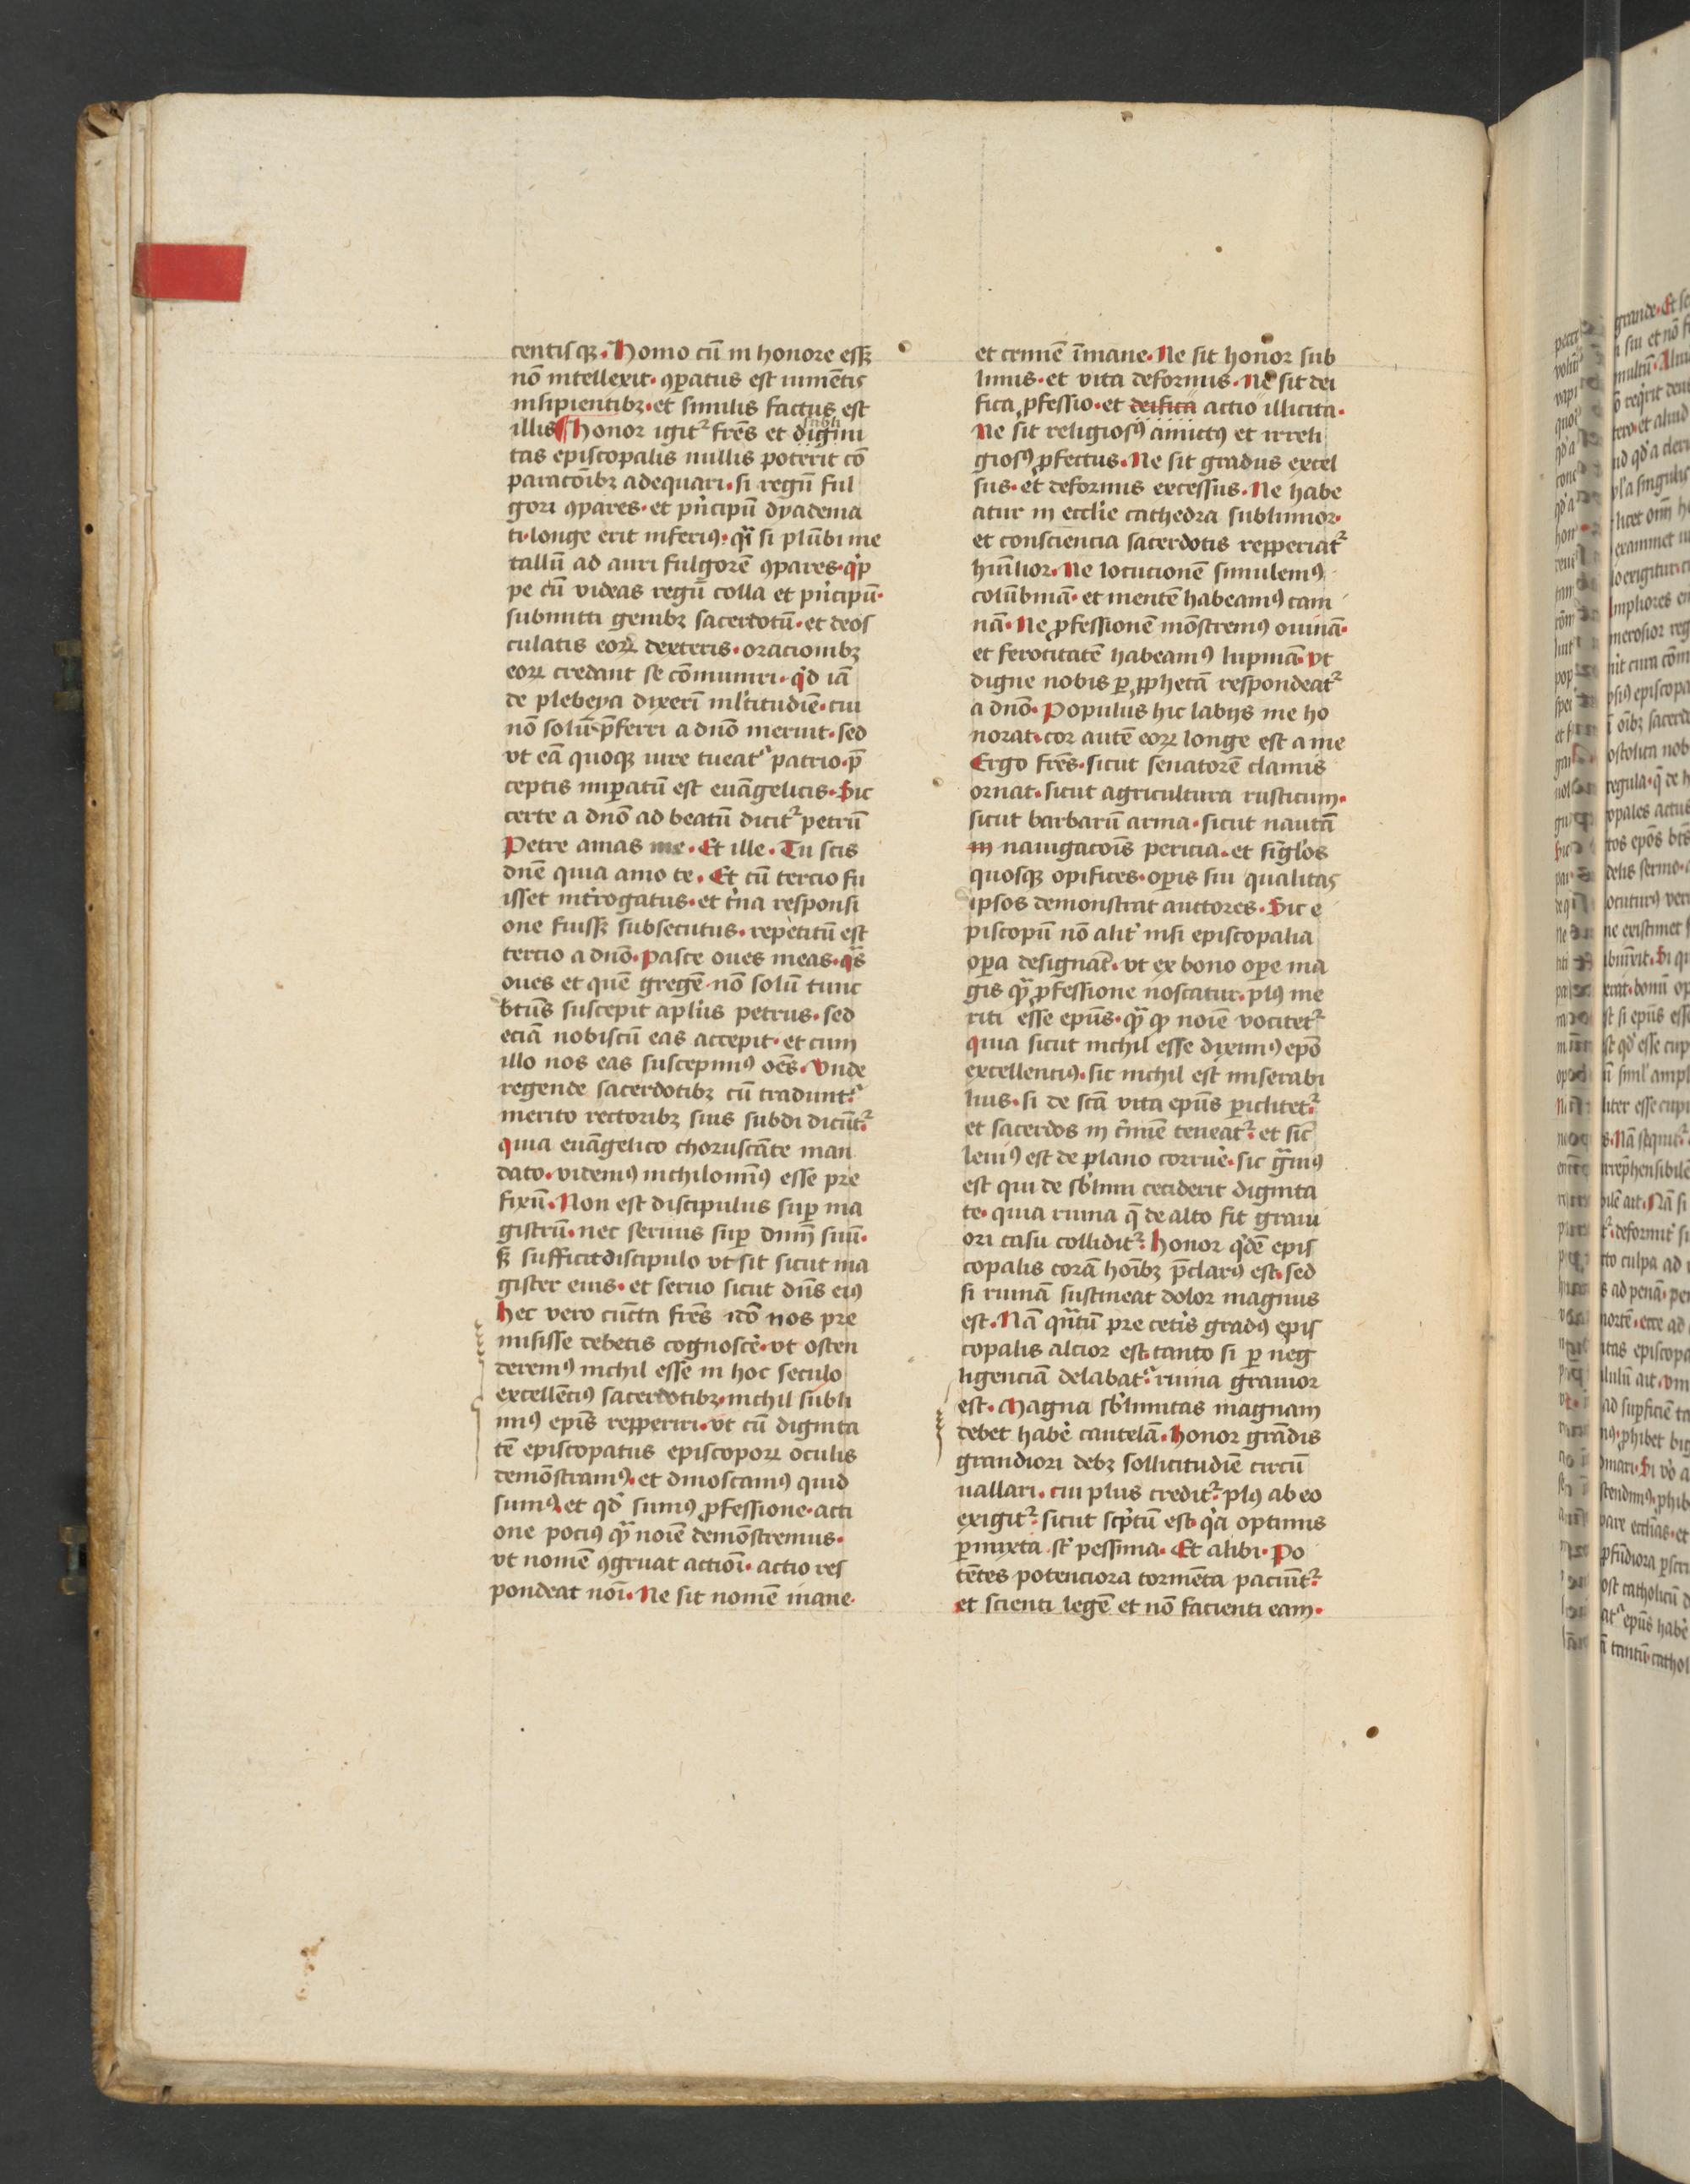 centisqꝫ. Homo cū in honore essꝫ
nō intellexit. ꝯparatus est iumētis
insipientibꝫ. et similis factus est
illis ¶ Honor igit᷑ frēs et digini
subli
tas episcopalis nullis poterit cō
paracōibꝫ adequari. si regū ful
gori ꝯpares. et pͥncipū dyadema
ti. longe erit inferiꝰ. qͣi si plūbi me
tallū ad auri fulgorē ꝯpares. qͥp
pe cū videas regū colla et pͥncipū.
submitti genibꝫ sacerdotū. et deos
culatis eoꝝ dexteris. oracionibꝫ
eoꝝ credant se cōmuniri. qͥd iā
de plebeya dixerī ml̄titudīe. cui
nō solū p̄ferri a dnō meruit. sed
vt eā quoqꝫ iure tueat᷑ patrio. p̄
ceptis imꝑatū est euāgelicis. Sic
certe a dnō ad beatū dicit᷑ petrū
Petre amas me. Et ille. Tu scis
dnē quia amo te. Et cū tercio fu
isset int̾rogatus. et tͥna responsi
one fuissꝫ subsecutus. repetitū est
tercio a dnō. Pasce oues meas. qͣs
oues et quē gregē nō solū tunc
btūs suscepit aplūs petrus. sed
eciā nobiscū eas accepit. et cum
illo nos eas suscepimꝰ oēs. Vnde
regende sacerdotibꝫ cū tradunt᷑.
merito rectoribꝫ suis subdi dicūt᷑.
quia euāgelico choruscāte man
dato. videmꝰ nichilominꝰ esse pre
fixū. Non est discipulus suꝑ ma
gistrū. nec seruus suꝑ dnm̄ suū.
sꝫ sufficit discipulo vt sit sicut ma
gister eius. et seruo sicut dn̄s eiꝰ
Hec vero cūcta frēs idō nos pre
misisse debetis cognoscē̾. vt osten
deremꝰ nichil esse in hoc seculo
excellēciꝰ sacerdotibꝫ. nichil subli
miꝰ ep̄is repperiri. vt cū dignita
tē episcopatus episcopoꝝ oculis
demōstramꝰ. et dinoscamꝰ quid
sumꝰ. et qd̾ sumꝰ ꝓfessione. acti
one pociꝰ qͣ noīe demōstremus.
vt nomē ꝯgruat actiōi. actio res
pondeat noī. Ne sit nomē inane.
et crimē īmane. Ne sit honor sub
limis. et vita deformis. Ne sit dei
fica ꝓfessio. et deifica actio illicita.
Ne sit religiosꝰ amictꝰ et irreli
giosꝰ ꝓfectus. Ne sit gradus excel
sus. et deformis excessus. Ne habe
atur in eccl̄ie cathedra sublimior.
et consciencia sacerdotis repperiat᷑
humīlior. Ne locucionē simulemꝰ
colūbinā. et mentē habeamꝰ cani
nā. Ne ꝓfessionē mōstremꝰ ouinā.
et ferocitatē habeamꝰ lupinā. vt
digne nobis ꝑ ꝓphetā respondeat᷑
a dnō. Populus hic labijs me ho
norat. cor autē eoꝝ longe est a me
Ergo frēs. sicut senatorē clamis
ornat. sicut agricultura rusticum.
sicut barbarū arma. sicut nautā
in nauigacōis pericia. et sīgl̾os
quosqꝫ opifices. oꝑis sui qualitas
ipsos demonstrat auctores. Sic e
piscopū nō alit̾ nisi episcopalia
oꝑa designāt. vt ex bono oꝑe ma
gis qͣ ꝓfessione noscatur. plꝰ me
riti esse epūs. qͣ qͦ noīe vocitet᷑
quia sicut nichil esse diximꝰ epō
excellenciꝰ. sic nichil est miserabi
lius. si de scā vita epūs ꝑiclitet᷑.
et sacerdos in cͥmīe teneat᷑. et sic
leuiꝰ est de plano corruē̾. sic gͣuiꝰ
est qui de sb̾limi ceciderit dignita
te. quia ruina q̄ de alto fit graui
ori casu collidit᷑. Honor qͥdē epis
copalis corā hoībꝫ p̄clarꝰ est. sed
si ruinā sustineat dolor magnus
est. Nā qͣntū pre cet̾is gradꝰ epis
copalis alcior est. tanto si ꝑ neg
ligenciā delabat᷑. ruina grauior
est. Magna sb̾limitas magnam
debet habē̾ cautelā. Honor grādis
grandiori debꝫ sollicitudīe circū
uallari. cui plus credit᷑. plꝰ ab eo
exigit᷑. sicut scͥptū est. qͥa optimis
ꝑmixta st̾ pessima. Et alibi. Po
tētes potenciora tormēta paciūt᷑.
et scienti legē et nō facienti eam.